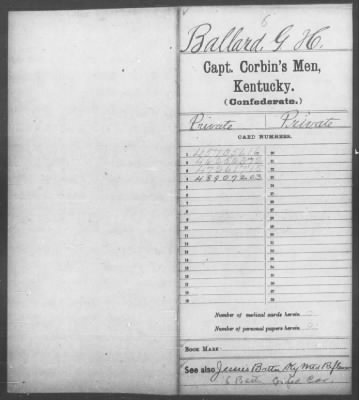 6
Ballard, G H.
Capt. Corbin's Men,
Kentucky.
(Confederate.)
Private Private
CARD NUMBERS.
1 45705616
4 48907203
Number of medical cards herein 0
Number of personal papers herein 0
BOOK MARK:
See also Jessie's Battn Ky Mtd Riflemen
6 Batt. Confed Cav.